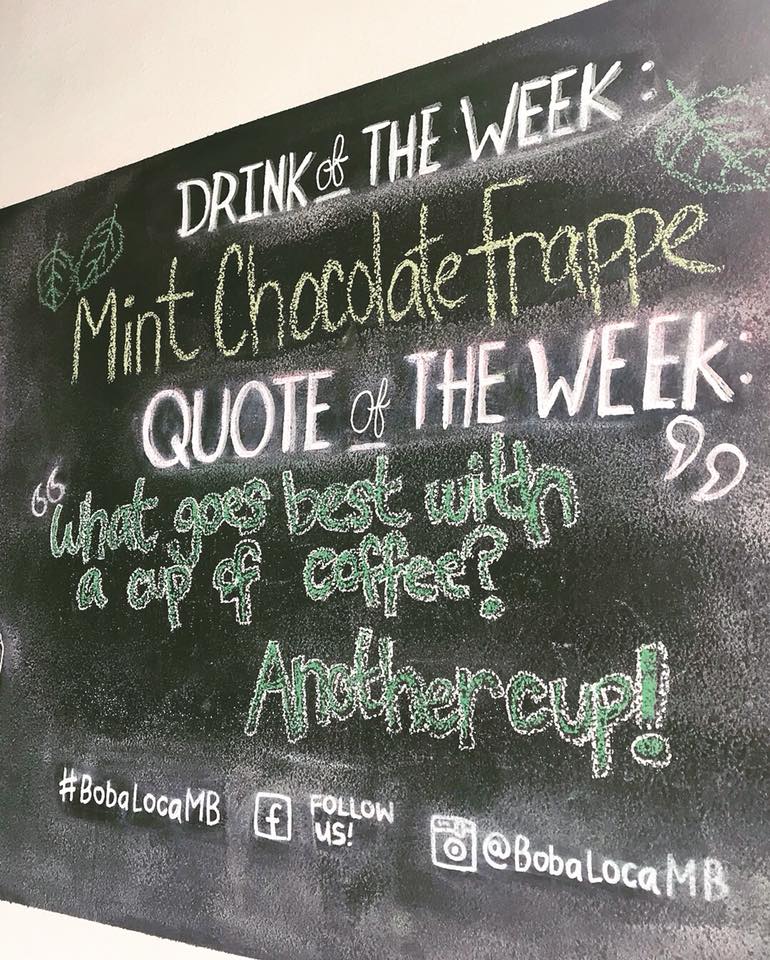 DRINK of THE WEEK:
Mint Chocolate Frappe
QUOTE of THE WEEK:
“What goes best with
a cup of coffee?
Another cup! ”
#BobaLocaMB f FOLLOW US! @BobaLocaMB